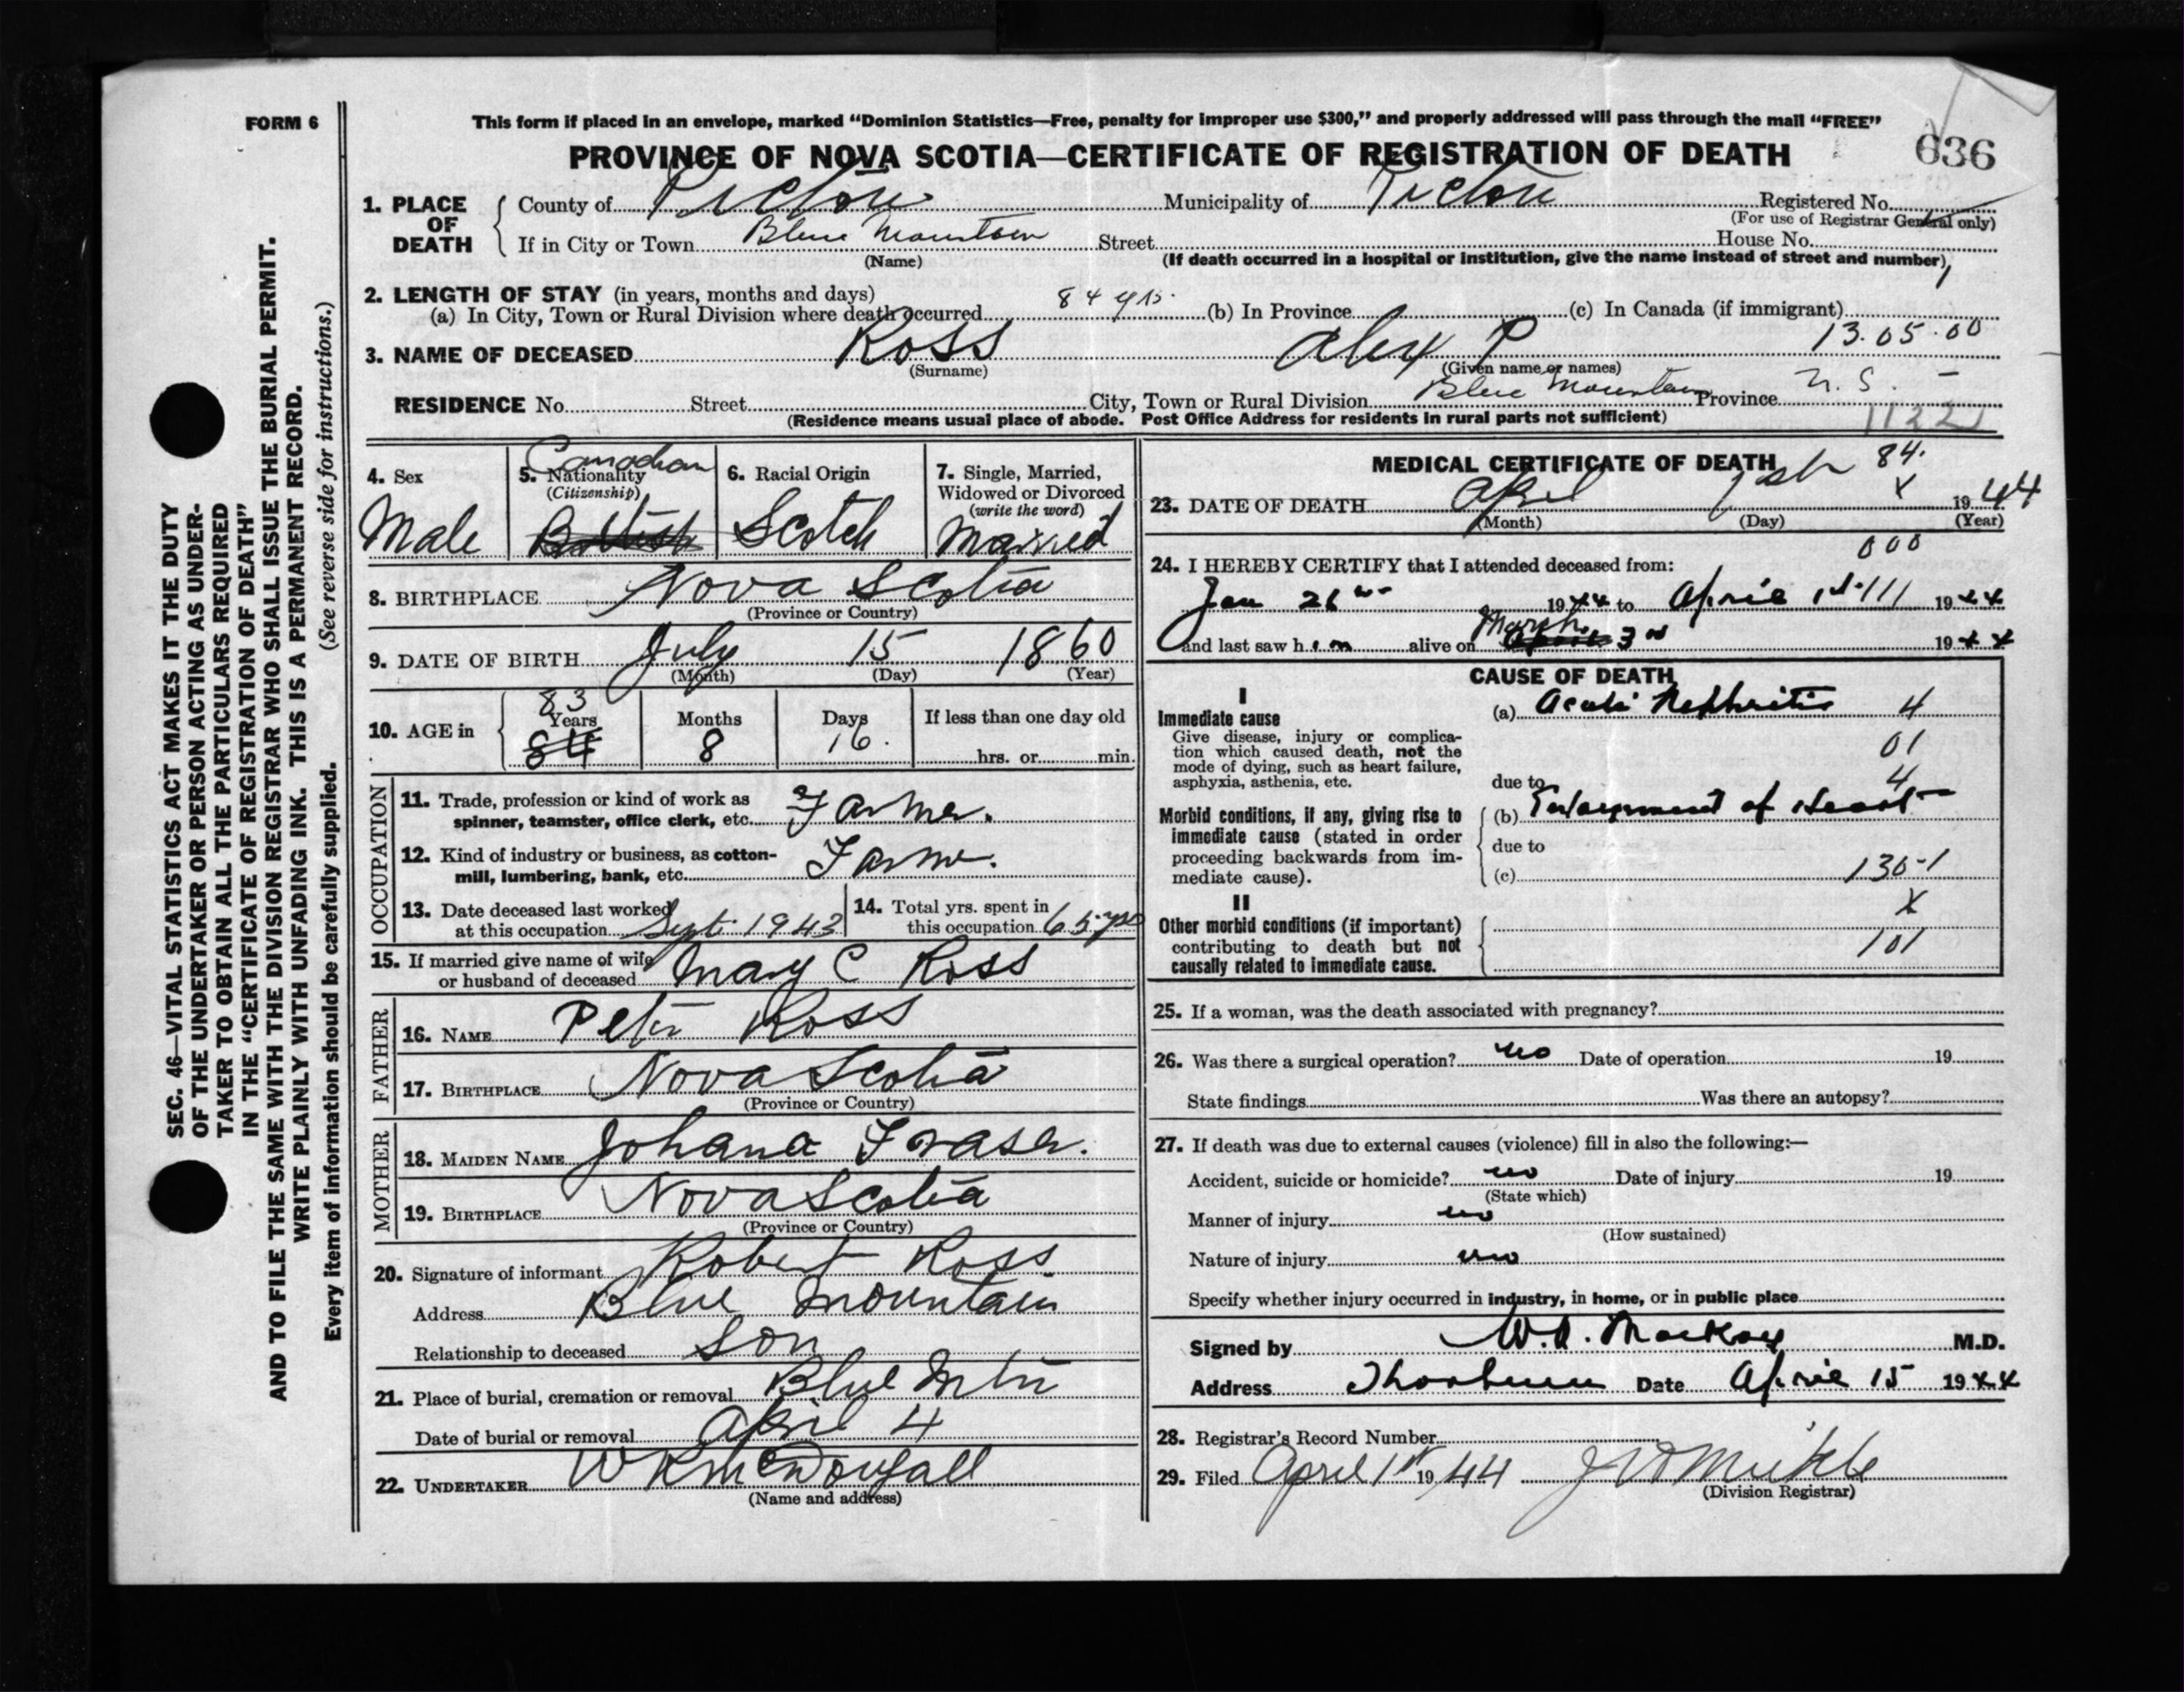 FORM 6
This form if placed in an envelope, marked “Dominion Statistics—Free, penalty for improper use $300,” and properly addressed will pass through the mail “FREE”
PROVINCE OF NOVA SCOTIA—CERTIFICATE OF REGISTRATION OF DEATH
636
1. PLACE OF DEATH
County of Pictou Municipality of Pictou Registered No.
(For use of Registrar General only)
If in City or Town Blue Mountain Street House No.
(Name) (If death occurred in a hospital or institution, give the name instead of street and number)
2. LENGTH OF STAY (in years, months and days)
(a) In City, Town or Rural Division where death occurred 84 yrs. (b) In Province (c) In Canada (if immigrant)
13.05.00
3. NAME OF DECEASED Ross Alex P
(Surname) (Given name or names)
RESIDENCE No. Street City, Town or Rural Division Blue Mountain Province N.S. —
(Residence means usual place of abode. Post Office Address for residents in rural parts not sufficient)
1122
SEC. 46—VITAL STATISTICS ACT MAKES IT THE DUTY
OF THE UNDERTAKER OR PERSON ACTING AS UNDER-
TAKER TO OBTAIN ALL THE PARTICULARS REQUIRED
IN THE “CERTIFICATE OF REGISTRATION OF DEATH”
AND TO FILE THE SAME WITH THE DIVISION REGISTRAR WHO SHALL ISSUE THE BURIAL PERMIT.
WRITE PLAINLY WITH UNFADING INK. THIS IS A PERMANENT RECORD.
Every item of information should be carefully supplied. (See reverse side for instructions.)
4. Sex
Male
5. Nationality
(Citizenship)
Canadian
British
6. Racial Origin
Scotch
7. Single, Married,
Widowed or Divorced
(write the word)
Married
8. BIRTHPLACE Nova Scotia
(Province or Country)
9. DATE OF BIRTH July 15 1860
(Month) (Day) (Year)
10. AGE in
83
Years Months Days If less than one day old
84 8 16. hrs. or min.
OCCUPATION
11. Trade, profession or kind of work as
spinner, teamster, office clerk, etc. Farmer.
12. Kind of industry or business, as cotton-
mill, lumbering, bank, etc. Farm.
13. Date deceased last worked
at this occupation Sept. 1943
14. Total yrs. spent in
this occupation 65 yrs
15. If married give name of wife
or husband of deceased Mary C Ross
FATHER
16. NAME Peter Ross
17. BIRTHPLACE Nova Scotia
(Province or Country)
MOTHER
18. MAIDEN NAME Johana Fraser.
19. BIRTHPLACE Nova Scotia
(Province or Country)
20. Signature of informant Robert Ross
Address Blue Mountain
Relationship to deceased Son
21. Place of burial, cremation or removal Blue Mtn
Date of burial or removal April 4
22. UNDERTAKER W R McDougall
(Name and address)
MEDICAL CERTIFICATE OF DEATH
84.
X
23. DATE OF DEATH April 1st 1944
(Month) (Day) (Year)
000
24. I HEREBY CERTIFY that I attended deceased from:
Jan 26 1944 to April 1st 111 1944
March
and last saw him alive on 3rd 1944
CAUSE OF DEATH
I
Immediate cause
Give disease, injury or complica-
tion which caused death, not the
mode of dying, such as heart failure,
asphyxia, asthenia, etc.
(a) Acute Nephritis 4
01
due to 4
Morbid conditions, if any, giving rise to
immediate cause (stated in order
proceeding backwards from im-
mediate cause).
(b) Enlargement of Heart
due to
(c) 130-1
X
II
Other morbid conditions (if important)
contributing to death but not
causally related to immediate cause.
101
25. If a woman, was the death associated with pregnancy?
26. Was there a surgical operation? no Date of operation 19
State findings Was there an autopsy?
27. If death was due to external causes (violence) fill in also the following:—
Accident, suicide or homicide? no Date of injury 19
(State which)
Manner of injury no
(How sustained)
Nature of injury no
Specify whether injury occurred in industry, in home, or in public place
Signed by W.A. MacKay M.D.
Address Thorburn Date April 15 1944
28. Registrar's Record Number
29. Filed April 1st 1944
(Division Registrar)